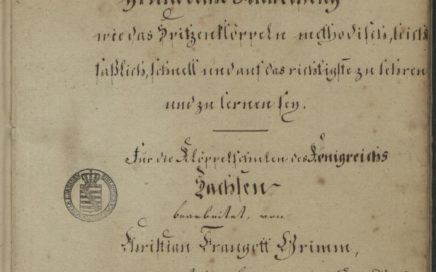 Gründliche Anweisung
wie das Spitzenklöppeln methodisch, leicht
faßlich, schnell und auf das richtigste zu lehren
und zu lernen sey.
Für die Klöppelschulen des Königreichs
Sachsen
bearbeitet, von
Christian Traugott Grimm,